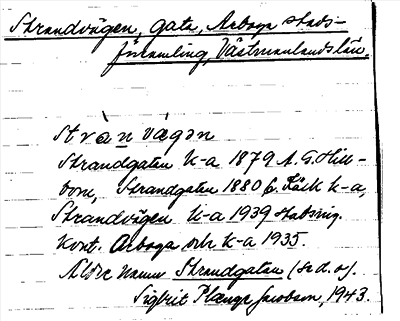 Strandvägen, gata, Arboga stads-
församling, Västmanlands län.
Strànvägan
Strandgatan k-a 1879 A. G. Hill-
bom, Strandgatan 1880 G. Räck k-a,
Strandvägen k-a 1939
Kont. Arboga och k-a 1935.
Äldre namn Strandgatan (se d. o).
Sigbrit Plænge Jacobson, 1943.